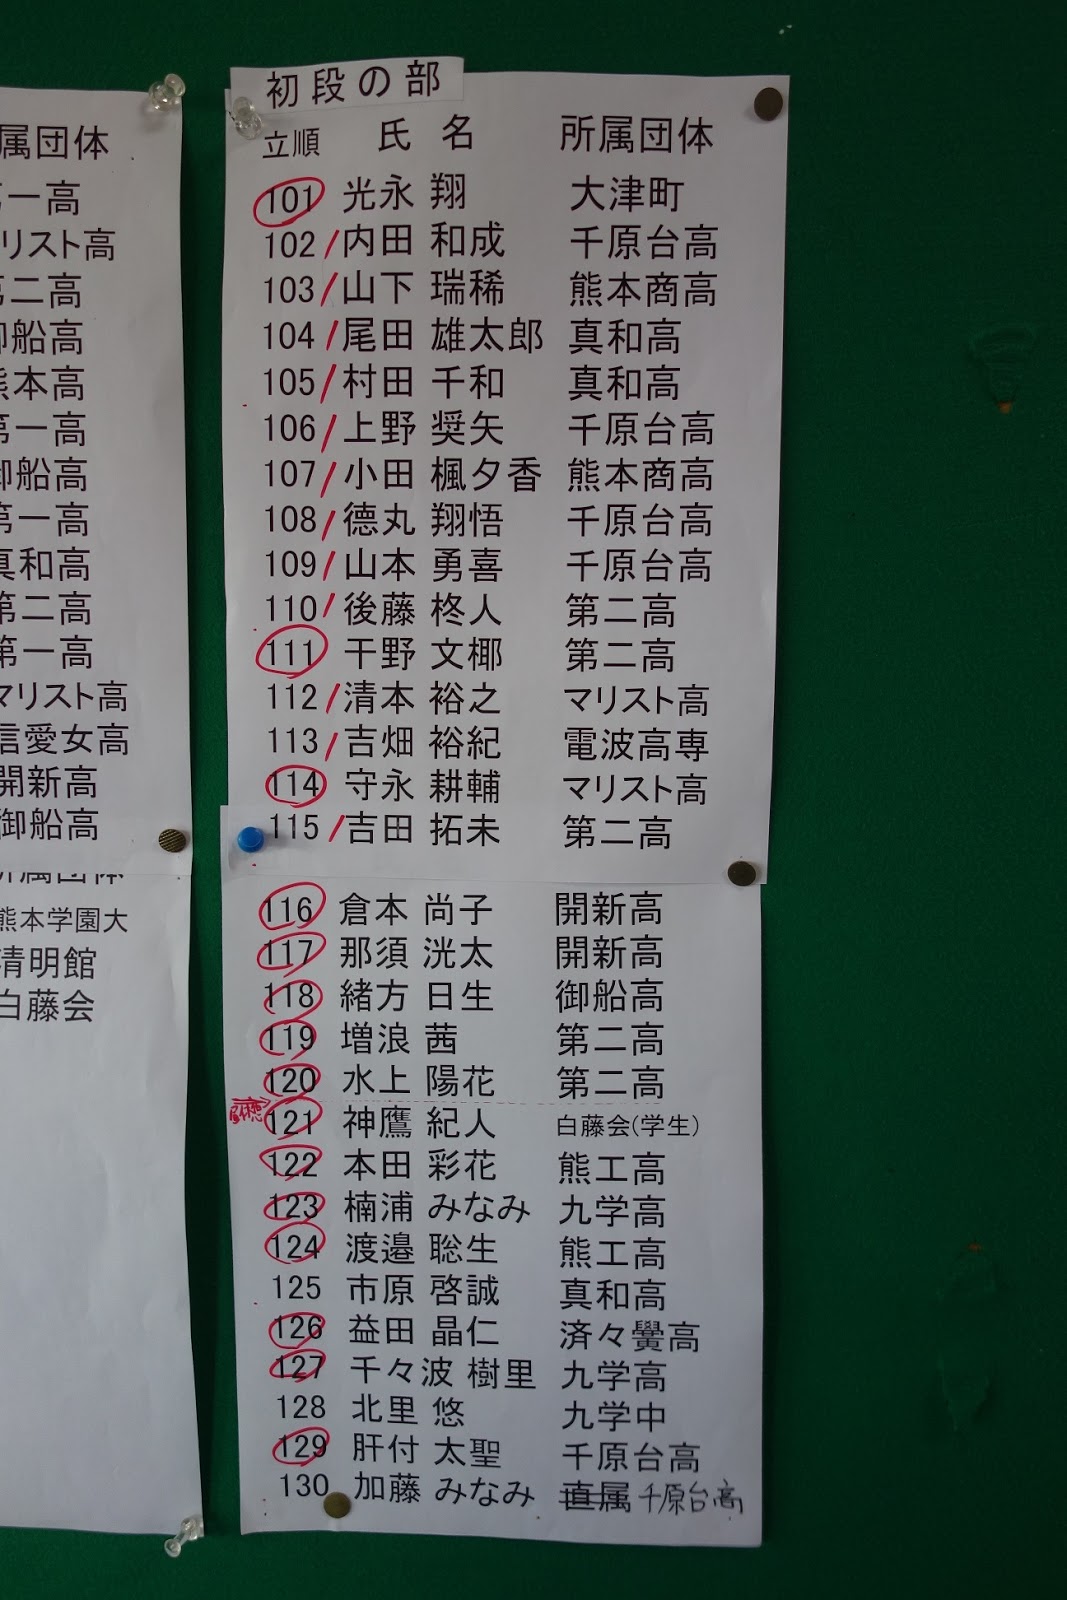 属団体
一高
リスト高
二高
船高
本高
一高
御船高
第一高
真和高
第二高
第一高
マリスト高
信愛女高
開新高
御船高
所属団体
熊本学園大
清明館
白藤会
初段の部
立順 氏 名 所属団体
101 光永 翔 大津町
102 内田 和成 千原台高
103 山下 瑞稀 熊本商高
104 尾田 雄太郎 真和高
105 村田 千和 真和高
106 上野 奨矢 千原台高
107 小田 楓夕香 熊本商高
108 德丸 翔悟 千原台高
109 山本 勇喜 千原台高
110 後藤 柊人 第二高
111 干野 文椰 第二高
112 清本 裕之 マリスト高
113 吉畑 裕紀 電波高専
114 守永 耕輔 マリスト高
115 吉田 拓未 第二高
116 倉本 尚子 開新高
117 那須 洸太 開新高
118 緒方 日生 御船高
119 増浪 茜 第二高
120 水上 陽花 第二高
121 神鷹 紀人 白藤会(学生)
122 本田 彩花 熊工高
123 楠浦 みなみ 九学高
124 渡邉 聡生 熊工高
125 市原 啓誠 真和高
126 益田 晶仁 済々黌高
127 千々波 樹里 九学高
128 北里 悠 九学中
129 肝付 太聖 千原台高
130 加藤 みなみ 直属 千原台高